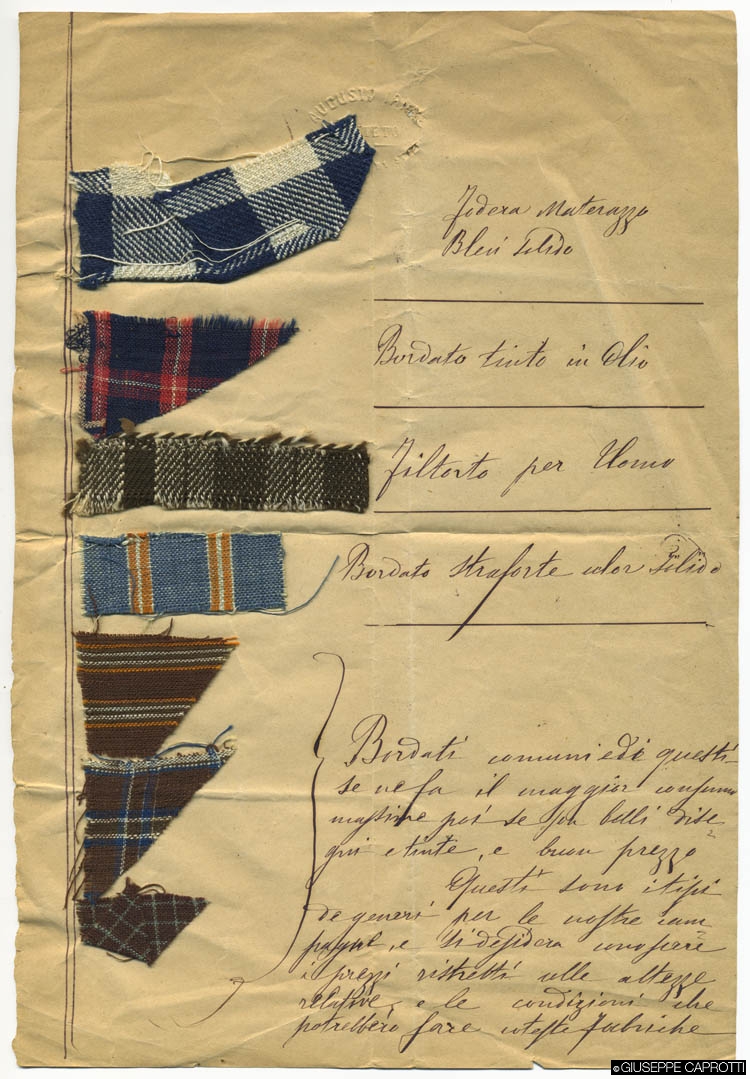 AUGUSTO
Fodera Materazzo
Bleu Solido
Bordato tinto in Olio
Filtorto per Uomo
Bordato Straforte color Solido
Bordati comuni e di questi
se ne fa il maggior consumo
massime poi se son belli dise
gni e tinte, e buon prezzo
Questi sono i tipi
de generi per le nostre cam
pagne, e si desidera conoscere
i prezzi ristretti colle altezze
relative, e le condizioni che
potrebbero fare coteste Fabbriche
©GIUSEPPE CAPROTTI